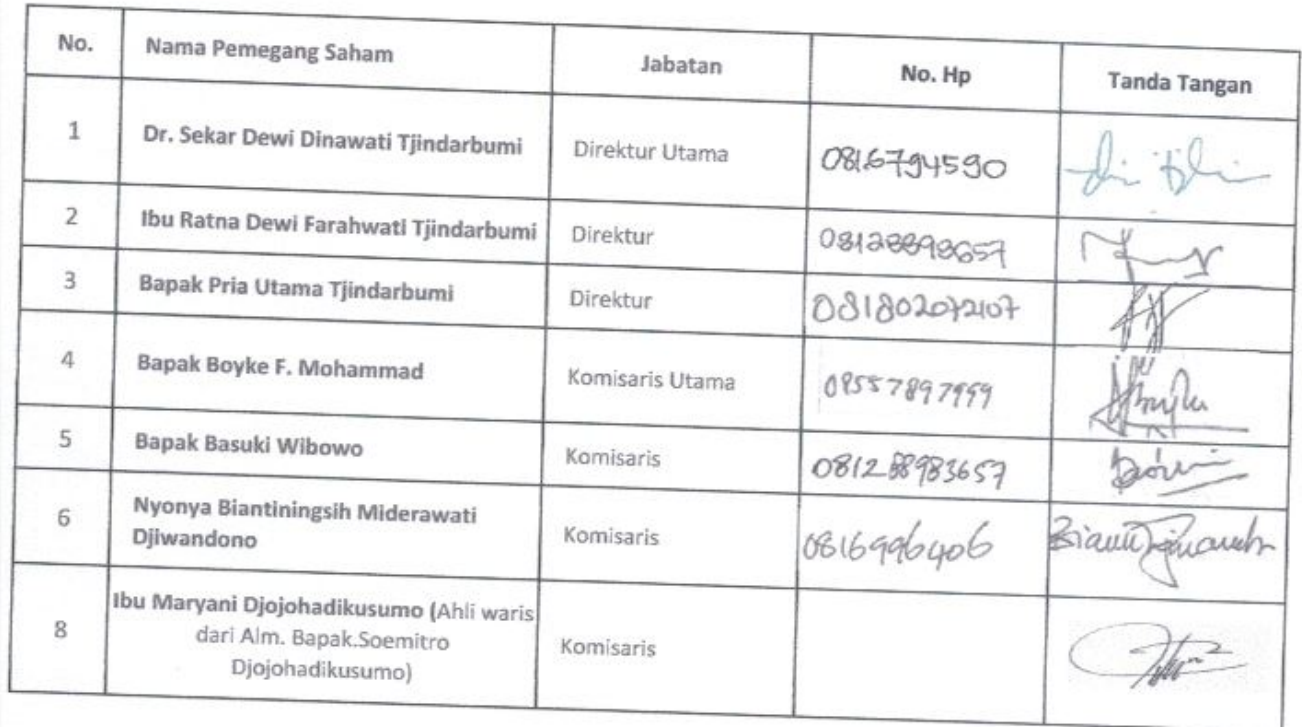 No. Nama Pemegang Saham Jabatan No. Hp Tanda Tangan
1 Dr. Sekar Dewi Dinawati Tjindarbumi Direktur Utama 0816794590
2 Ibu Ratna Dewi Farahwati Tjindarbumi Direktur
3 Bapak Pria Utama Tjindarbumi Direktur 081802072107
4 Bapak Boyke F. Mohammad Komisaris Utama
5 Bapak Basuki Wibowo Komisaris 081288983657
6 Nyonya Biantiningsih Miderawati
Djiwandono Komisaris 0816996406
8 Ibu Maryani Djojohadikusumo (Ahli waris
dari Alm. Bapak.Soemitro Komisaris
Djojohadikusumo)